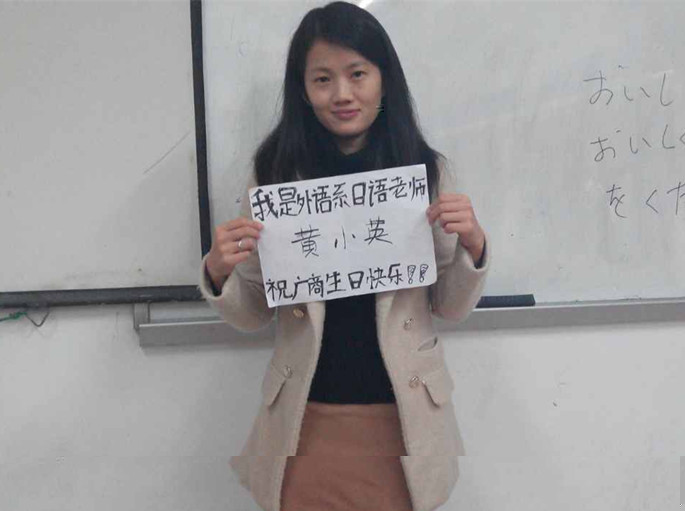 我是外语系日语老师
黄小英
祝广商生日快乐!!
おいし
おいしく
をくだ